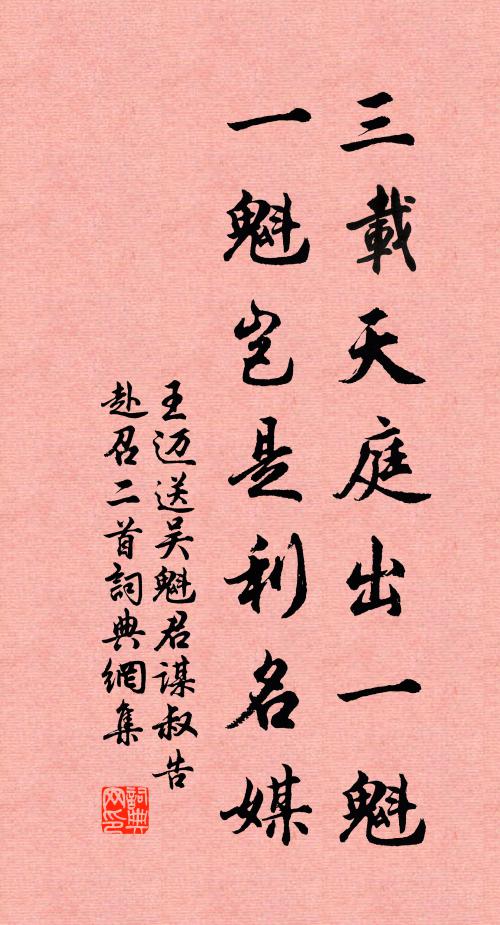 三載天庭出一魁
一魁豈是利名媒
王迈送吴魁君謀叔告
赴召二首詞典網集
詞典
网印